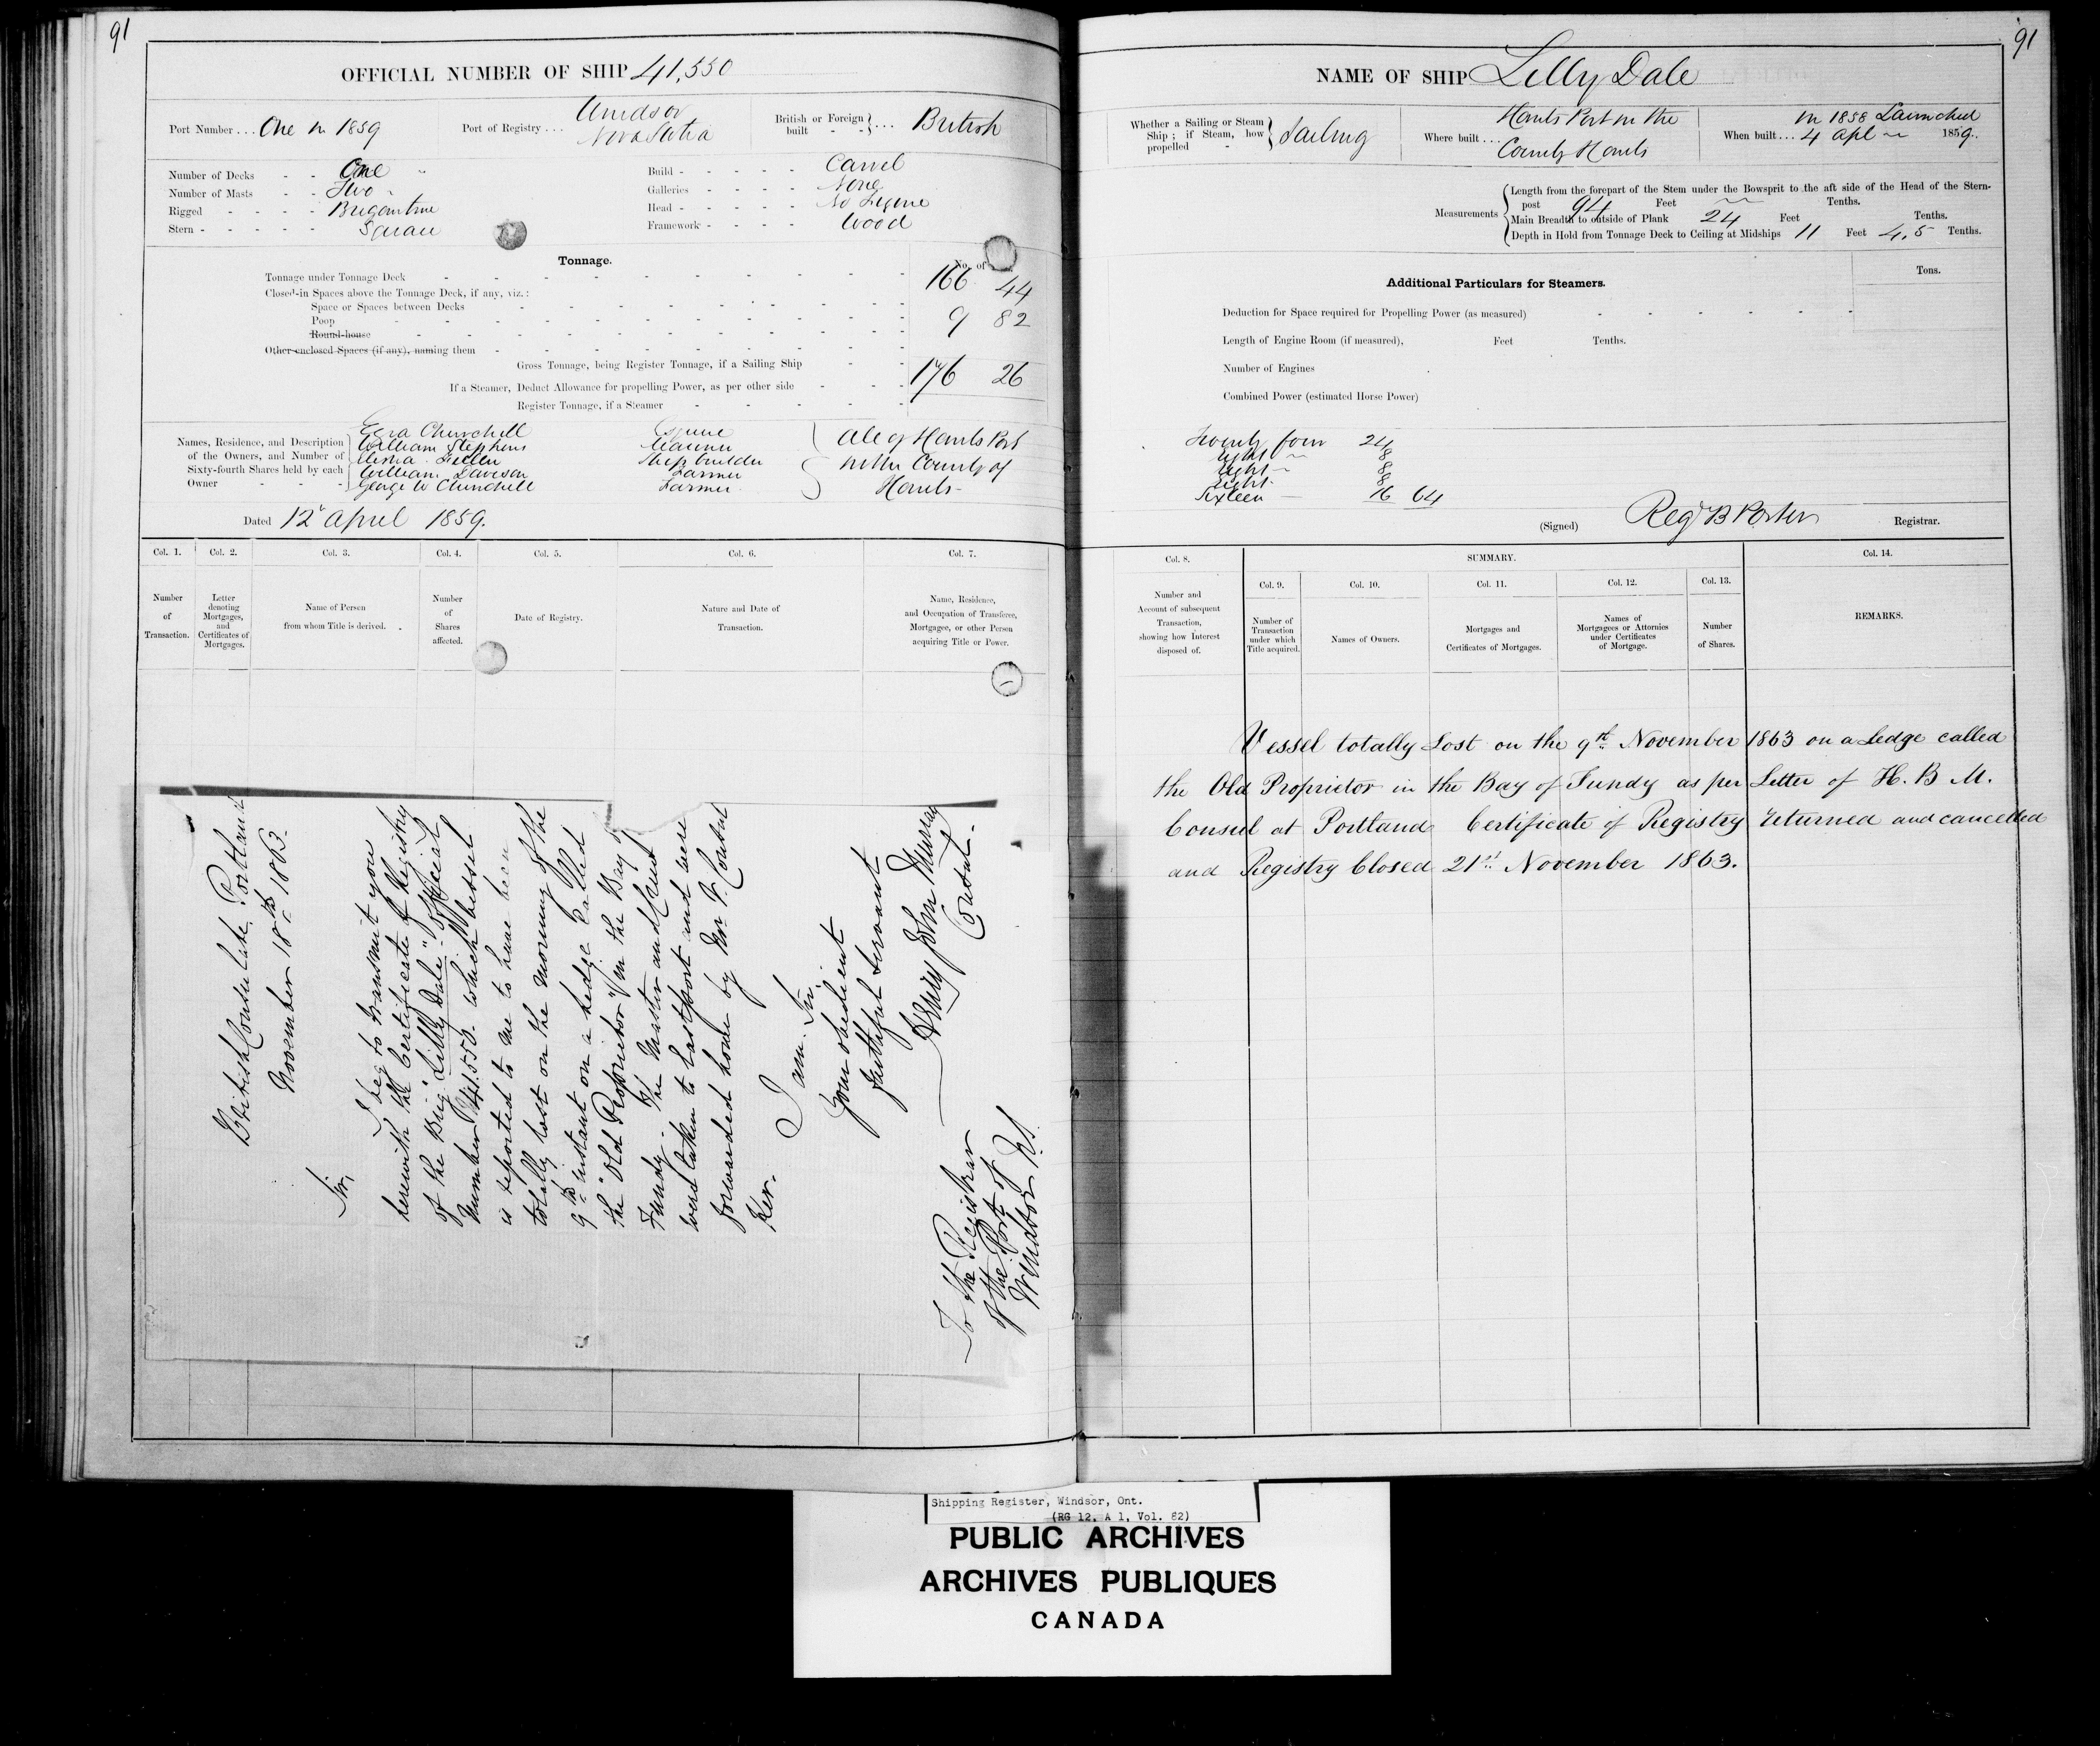 91
OFFICIAL NUMBER OF SHIP 41,550
Port Number . . . One in 1859
Port of Registry . . . Windsor
Nova Scotia
British or Foreign built - - } . . . British
Number of Decks - - One
Number of Masts - - Two
Rigged - - - - Brigantine
Stern - - - - - Square
Build - - - - - Carvel
Galleries - - - - None
Head - - - - - No Figure
Framework - - - - Wood
Tonnage.
No. of
Tonnage under Tonnage Deck 166 44
Closed-in Spaces above the Tonnage Deck, if any, viz.:
Space or Spaces between Decks
Poop 9 82
Round-house
Other enclosed Spaces (if any), naming them
Gross Tonnage, being Register Tonnage, if a Sailing Ship 176 26
If a Steamer, Deduct Allowance for propelling Power, as per other side
Register Tonnage, if a Steamer
Names, Residence, and Description of the Owners, and Number of Sixty-fourth Shares held by each Owner
Ezra Churchill Esquire
William Stephens Mariner
Ship builder
William Davison Farmer
George W Churchill Farmer
All of Hants Port
in the County of
Hants
Dated 12 April 1859.
Col. 1. Col. 2. Col. 3. Col. 4. Col. 5. Col. 6. Col. 7.
Number of Transaction.
Letter denoting Mortgages, and Certificates of Mortgages.
Name of Person from whom Title is derived.
Number of Shares affected.
Date of Registry.
Nature and Date of Transaction.
Name, Residence, and Occupation of Transferee, Mortgagee, or other Person acquiring Title or Power.
British Consulate Portland
November 18th 1863.
Sir,
I beg to transmit you
herewith the Certificate of Registry
of the Brig "Lilly Dale" Official
Number 41.550. which vessel
is reported to me to have been
totally lost on the morning of the
9th instant on a Ledge called
the "Old Proprietor" in the Bay of
Fundy. The Master and Crew
were taken to Eastport and were
forwarded home by Mr. V. Consul
Ker.
I am. Sir.
Your obedient
faithful Servant
Henry John Murray
Consul.
To the Registrar
of the Port of
Windsor N.S.
91
NAME OF SHIP Lilly Dale
Whether a Sailing or Steam Ship; if Steam, how propelled - } Sailing
Where built . . . Hants Port in the
County Hants
When built . . . in 1858 Launched
4 Apl 1859.
Measurements
Length from the forepart of the Stem under the Bowsprit to the aft side of the Head of the Stern-
post 94 Feet Tenths.
Main Breadth to outside of Plank 24 Feet Tenths.
Depth in Hold from Tonnage Deck to Ceiling at Midships 11 Feet 4,5 Tenths.
Additional Particulars for Steamers.
Tons.
Deduction for Space required for Propelling Power (as measured)
Length of Engine Room (if measured), Feet Tenths.
Number of Engines
Combined Power (estimated Horse Power)
Twenty four 24
Eight 8
Eight 8
Eight 8
Sixteen 16 64
(Signed) Reg B Porter Registrar.
Col. 8. SUMMARY. Col. 14.
Col. 9. Col. 10. Col. 11. Col. 12. Col. 13.
Number and Account of subsequent Transaction, showing how Interest disposed of.
Number of Transaction under which Title acquired.
Names of Owners.
Mortgages and Certificates of Mortgages.
Names of Mortgagees or Attornies under Certificates of Mortgage.
Number of Shares.
REMARKS.
Vessel totally Lost on the 9th November 1863 on a Ledge called
the Old Proprietor in the Bay of Fundy as per Letter of H. B M.
Consul at Portland Certificate of Registry returned and cancelled
and Registry Closed 21st November 1863.
Shipping Register, Windsor, Ont.
(RG 12, A 1, Vol. 82)
PUBLIC ARCHIVES
ARCHIVES PUBLIQUES
CANADA